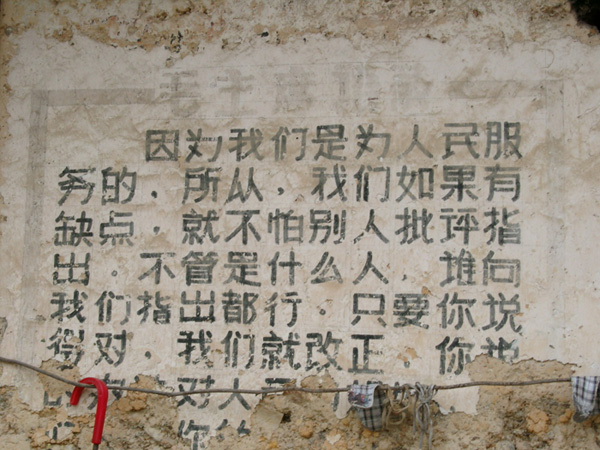 毛主席
因为我们是为人民服
务的，所以，我们如果有
缺点，就不怕别人批评指
出。不管是什么人，谁向
我们指出都行。只要你说
得对，我们就改正。你说
的办法对人民
你的